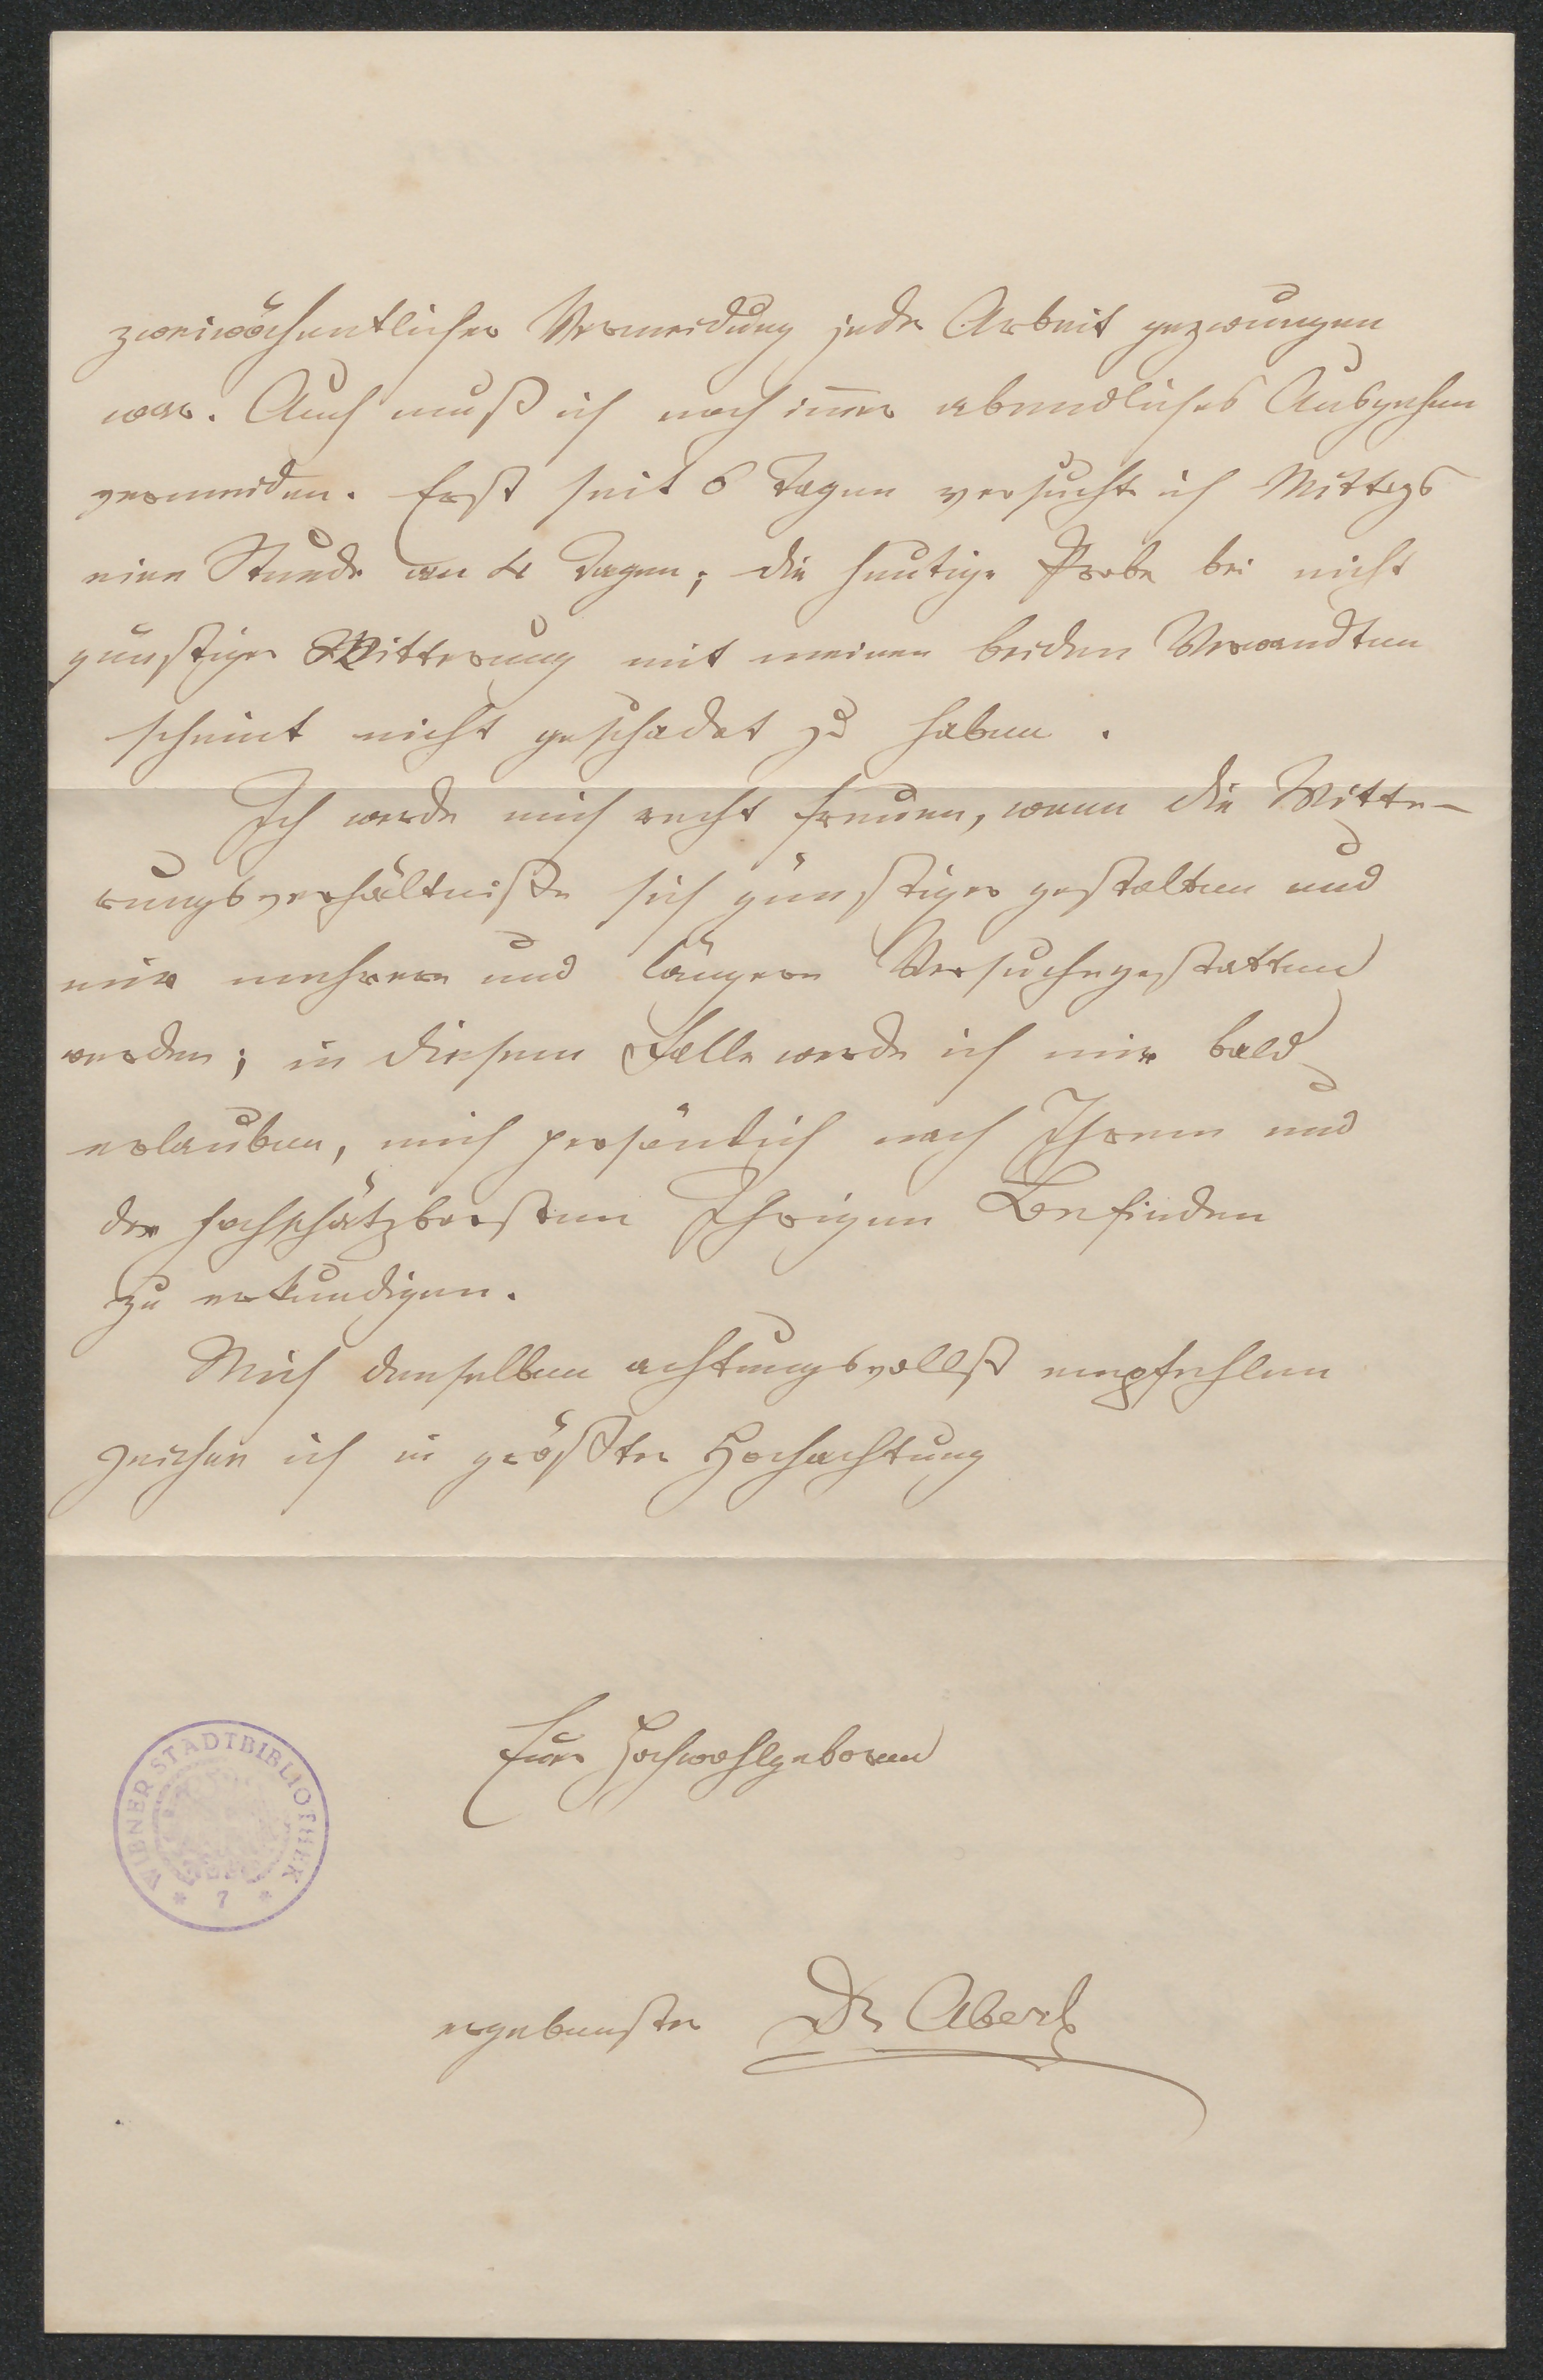 zweiwöchentlicher Vermeidung jeder Arbeit gezwungen
war. Auch muß ich noch im̅er abendliches Ausgehen
vermeiden. Erst seit 6 Tagen versuchte ich Mittags
eine Stunde an 4 Tagen; die heutige Probe bei nicht
günstiger Witterung mit meinen beiden Verwandten
scheint nicht geschadet zu haben.
Ich werde mich recht freuen, wenn die Witte-
rungsverhältniße sich günstiger gestalten und
mir mehrere und längere Versuche gestatten
werden; in diesem Falle werde ich mir bald
erlauben, mich persönlich nach Ihrem und
der hochschätzbarsten Ihrigen Befinden
zu erkundigen.
Mich denselben achtungsvollst empfehlen
zeichne ich in größter Hochachtung
Euer Hochwohlgeboren
WIENER STADTBIBLIOTHEK
* 7 *
ergebenster Dr Aberl